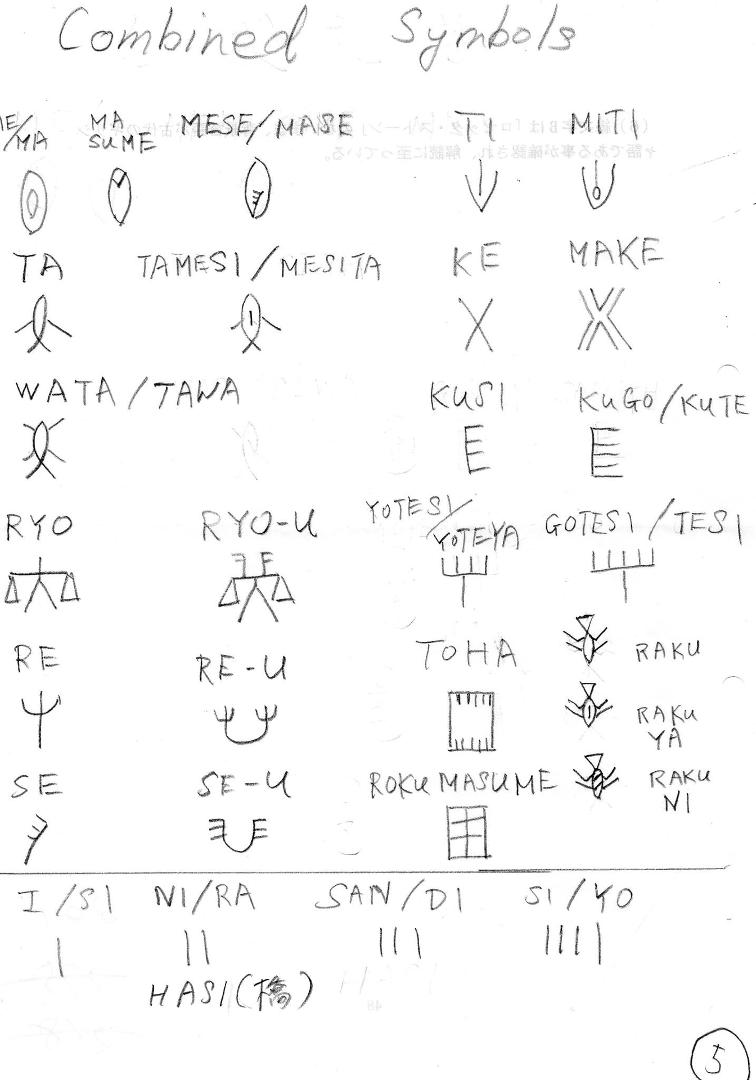 Combined Symbols
ME/MA MA SUME MESE/MASE TI MITI
TA TAMESI/MESITA KE MAKE
WATA/TAWA KUSI KUGO/KUTE
RYO RYO-U YOTESI/YOTEYA GOTESI/TESI
RE RE-U TOHA RAKU
RAKU YA
SE SE-U ROKUMASUME RAKU NI
I/SI NI/RA SAN/DI SI/YO
HASI(橋)
5